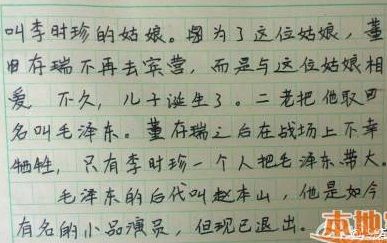 叫李时珍的姑娘。因为了这位姑娘，董
存瑞不再去宾营，而是与这位姑娘相
爱 不久，儿子诞生了。二老把他取
名叫毛泽东。董存瑞之后在战场上不幸
牺牲，只有李时珍一个人把毛泽东带大。
毛泽东的后代叫赵本山，他是如今
有名的小品演员，但现已退出。
本地